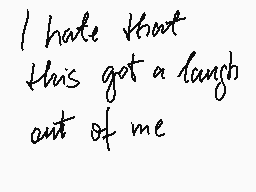 I hate that
this got a laugh
out of me